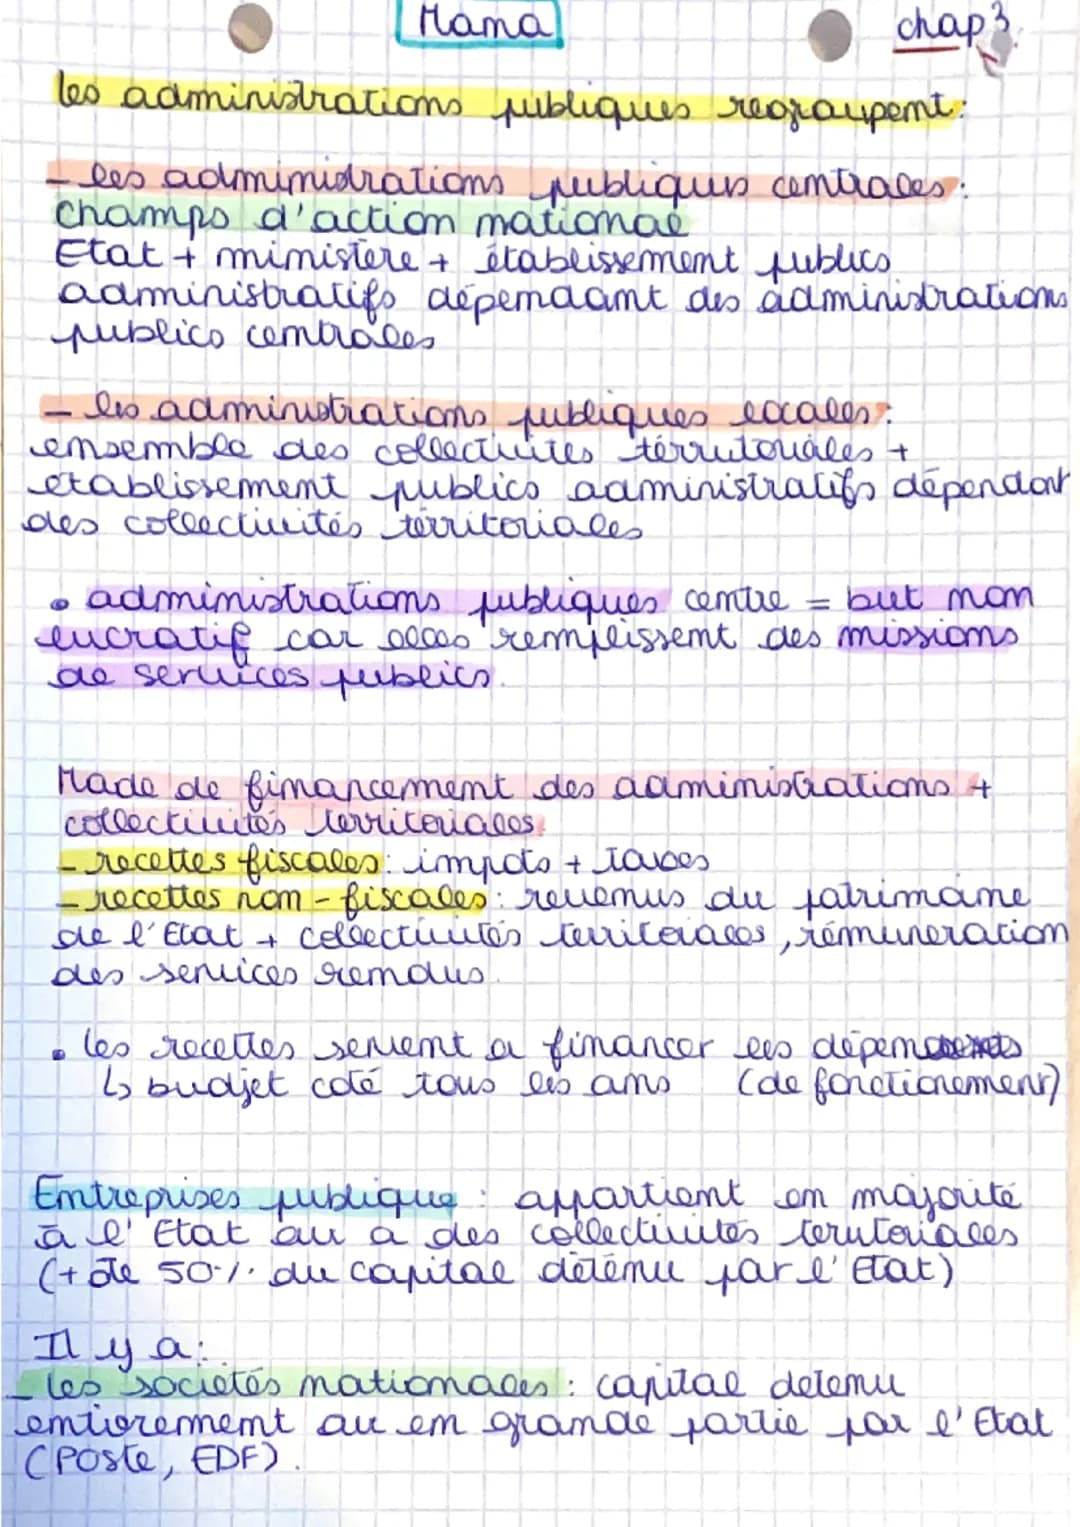 Mana
chap 3.
les administrations publiques regroupent:
- les administrations publiques centrales:
champs d'action national
Etat + ministère + établissement publics
administratifs dépendant des administrations
publics centrales
- les administrations publiques locales:
ensemble des collectivités térritoriales +
établissement publics administratifs dépendant
des collectivités térritoriales
• administrations publiques centre = but non
lucratif car elles remplissent des missions
de services publics.
Mode de financement des administrations +
collectivités territoriales:
- recettes fiscales: impots + taxes
- recettes non-fiscales: revenus du patrimoine
de l'Etat + collectivités territoriales, rémuneration
des services rendus.
• les recettes servent a financer les dépenses
↳ budjet coté tous les ans (de fonctionement)
Entreprises publique: appartient en majorité
à l'Etat ou a des collectivités territoriales
(+ de 50% du capital détenu par l'Etat)
Il y a:
- les sociétés nationales: capital detenu
entièrement ou en grande partie par l'Etat
(Poste, EDF).